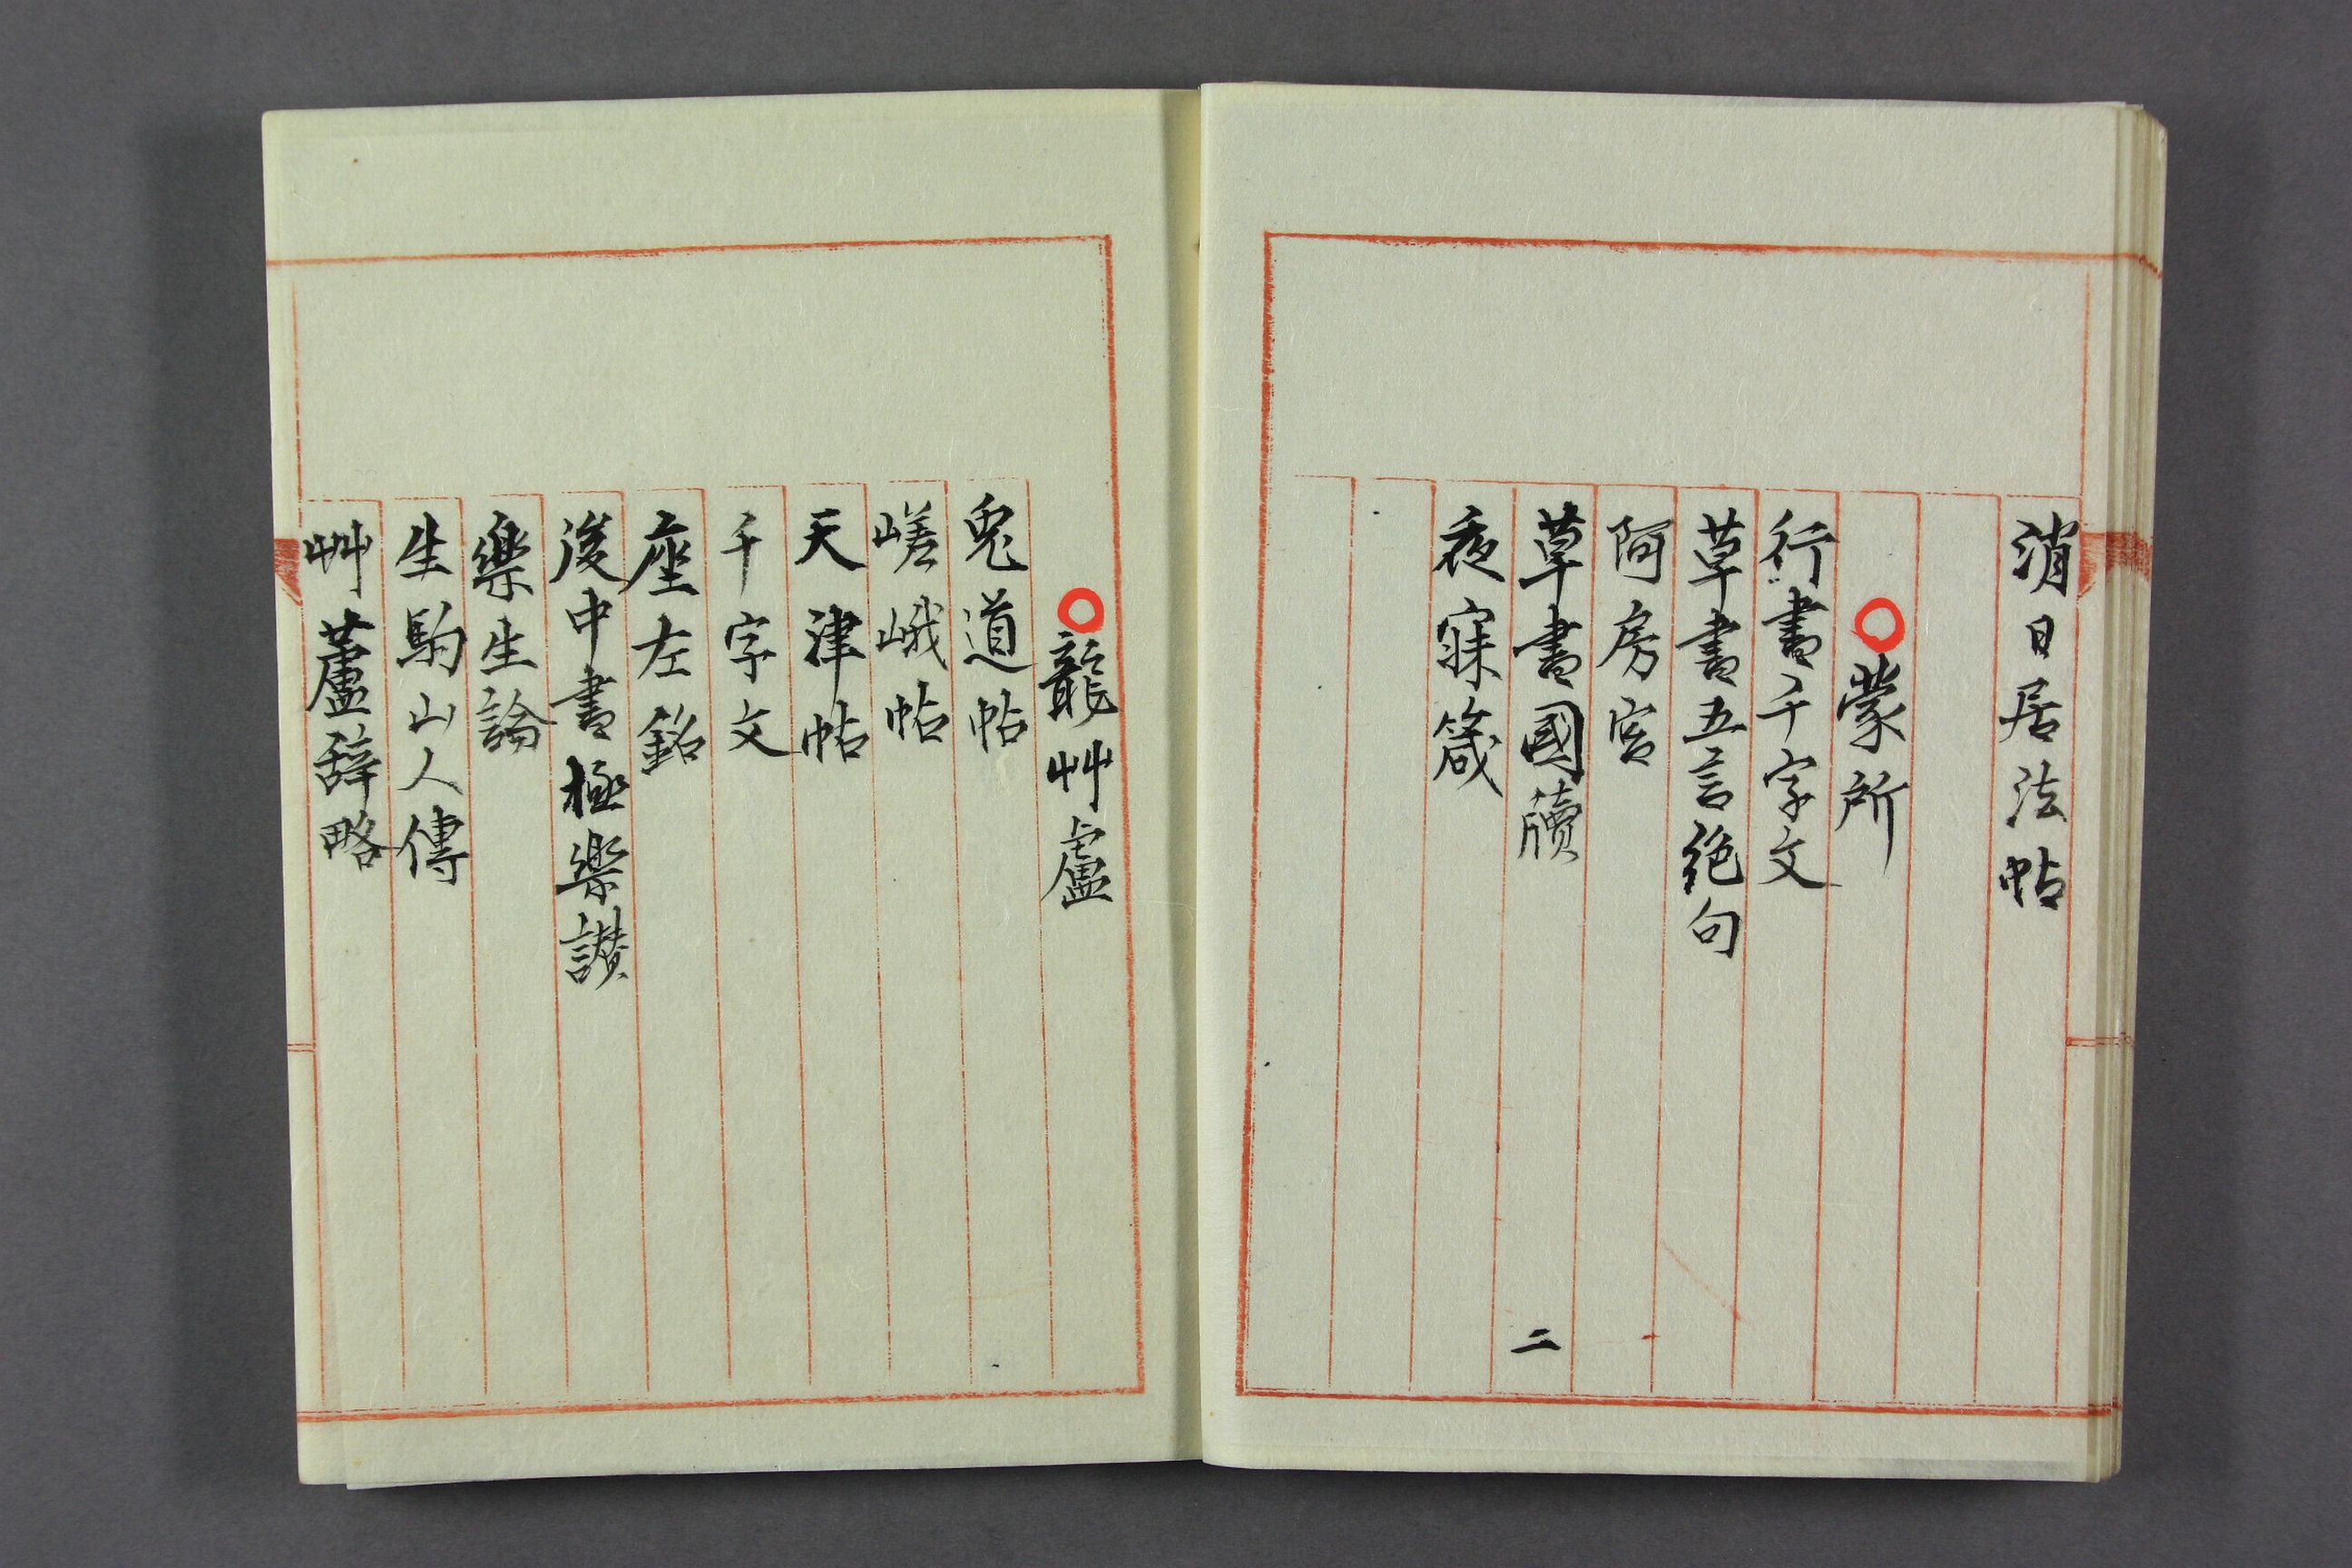 消日居法帖
〇蒙所
行書千字文
草書五言絶句
阿房宮
草書國牘
夜寐箴
二
〇龍艸盧
兎道帖
嵯峨帖
天津帖
千字文
座左銘
後中書極楽讃
樂生論
生駒山人傳
艸蘆辞略